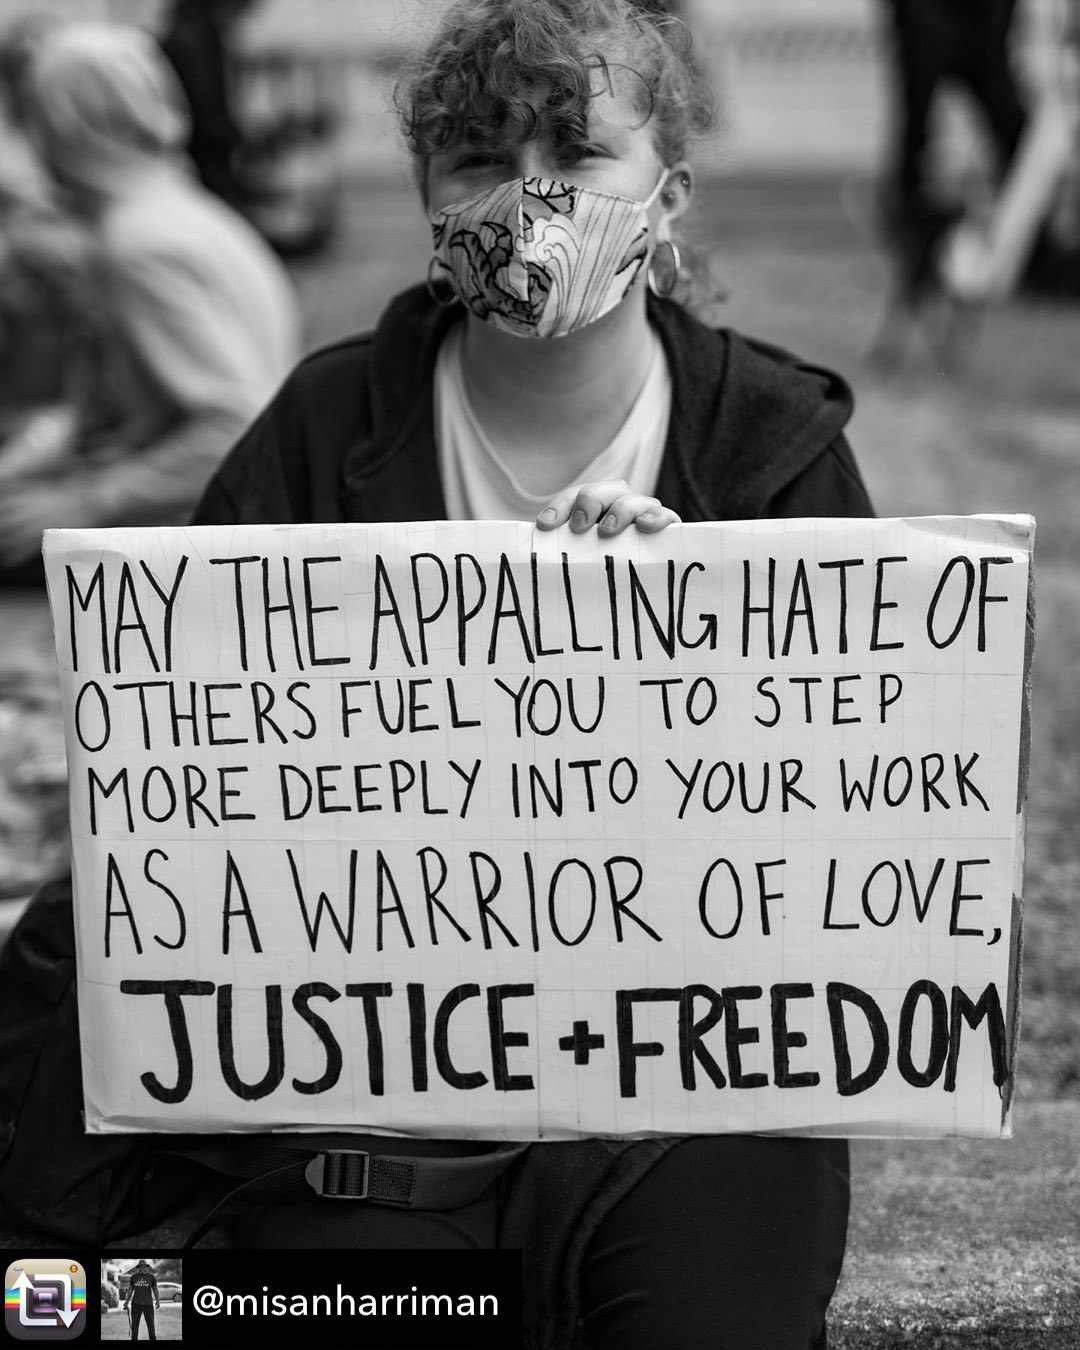 MAY THE APPALLING HATE OF
OTHERS FUEL YOU TO STEP
MORE DEEPLY INTO YOUR WORK
AS A WARRIOR OF LOVE,
JUSTICE + FREEDOM
@misanharriman